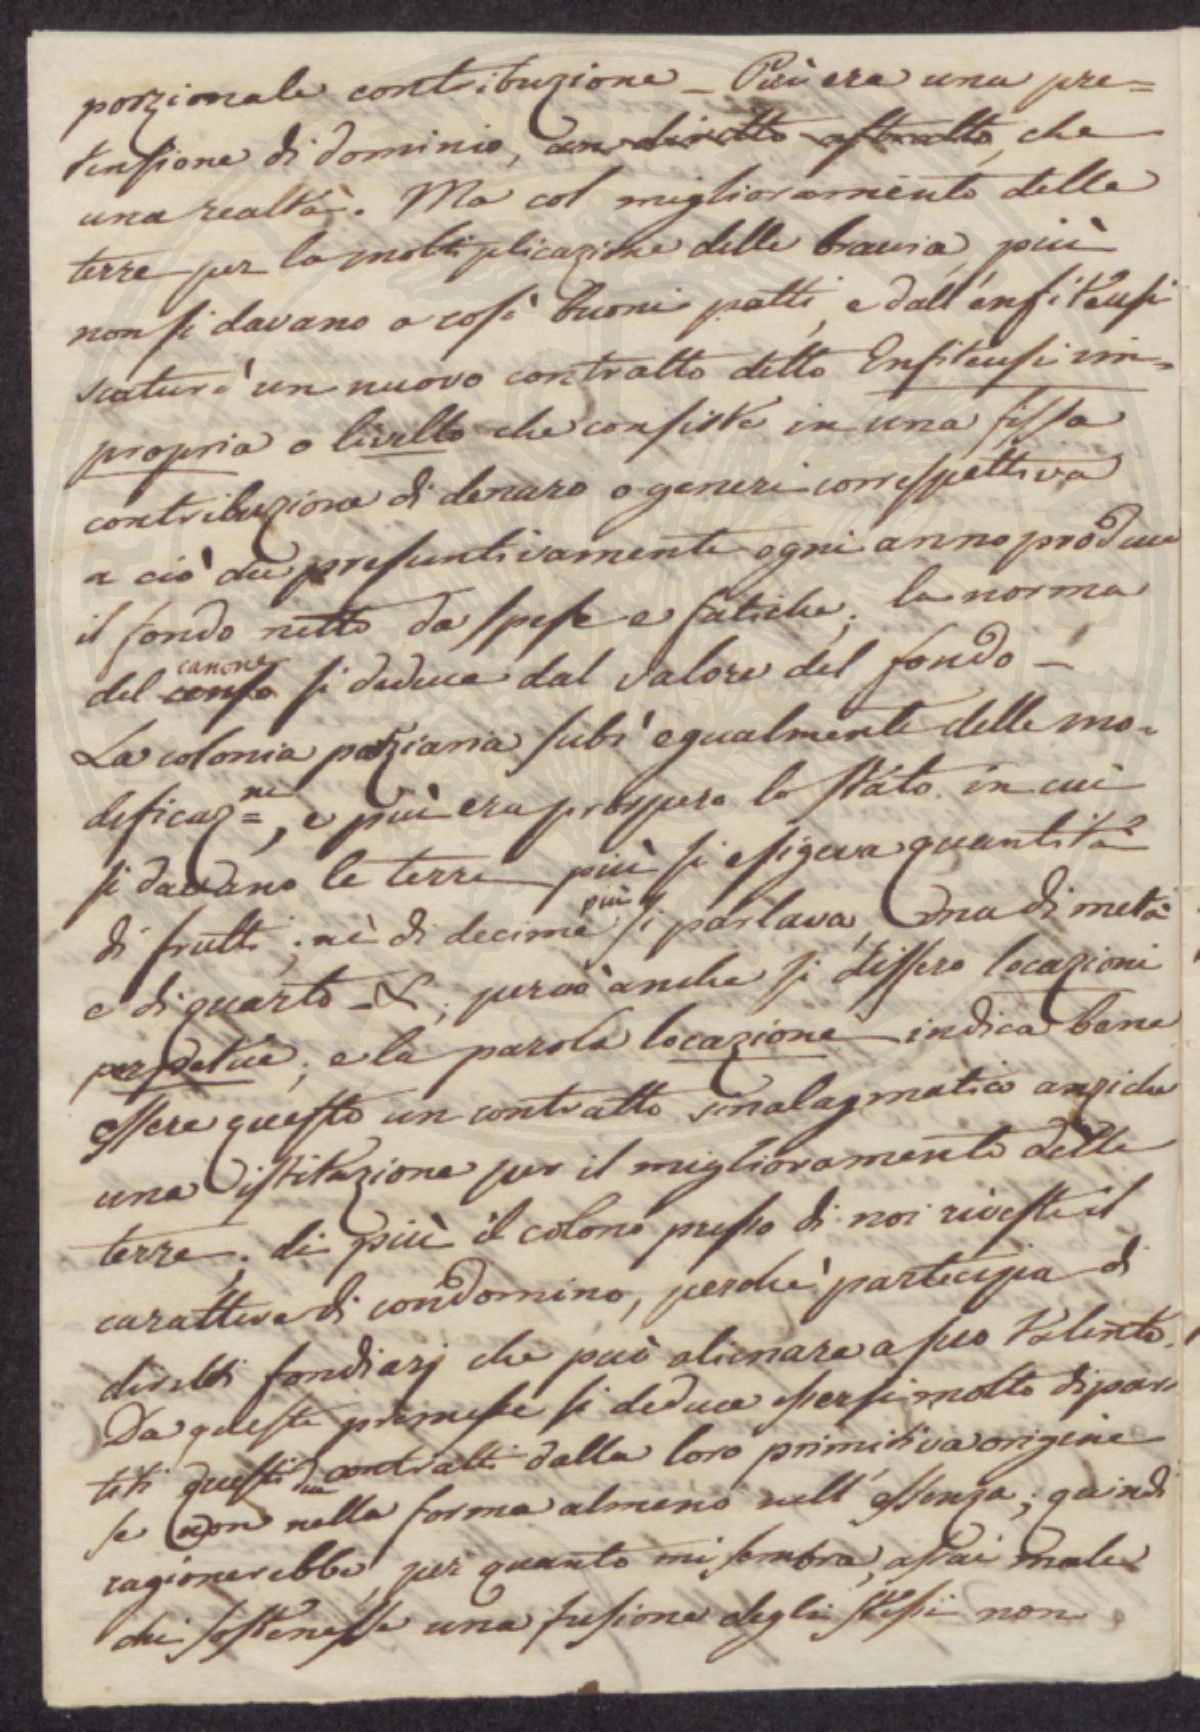 porzionale contribuzione – Più era una pre=
tensione di dominio, un diritto astratto, che
una realtà. Ma col miglioramento delle
terre per la moltiplicazione delle braccia, più
non si davano a così buoni patti, e dall'enfiteusi
scaturì un nuovo contratto detto Enfiteusi im=
propria o livello che consiste in una fissa
contribuzione di denaro o generi correspettiva
a ciò che presuntivamente ogni anno produce
il fondo netto da spese e fatiche; la norma
del censo canone si deduce dal valore del fondo –
La colonia parziaria subì egualmente delle mo=
dificaz=ni, e più era prospero lo stato in cui
si davano le terre più si esigeva quantità
di frutti; nè di decime più si parlava, ma di metà
e di quarto – &; perciò anche si dissero locazioni
perpetue; e la parola locazione indica bene
essere questo un contratto sinalagmatico anziche
una istituzione per il miglioramento delle
terre; di più il colono presso di noi riveste il
carattere di condomino, perchè partecipa di
diritti fondiarj che può alienare a suo talento.
Da queste premesse si deduce essersi molto dipar=
titi questi due contratti dalla loro primitiva origine
se non nella forma almeno nell'essenza; quindi
ragionerebbe, per quanto mi sembra, assai male
chi sostenesse una fusione degli stessi non